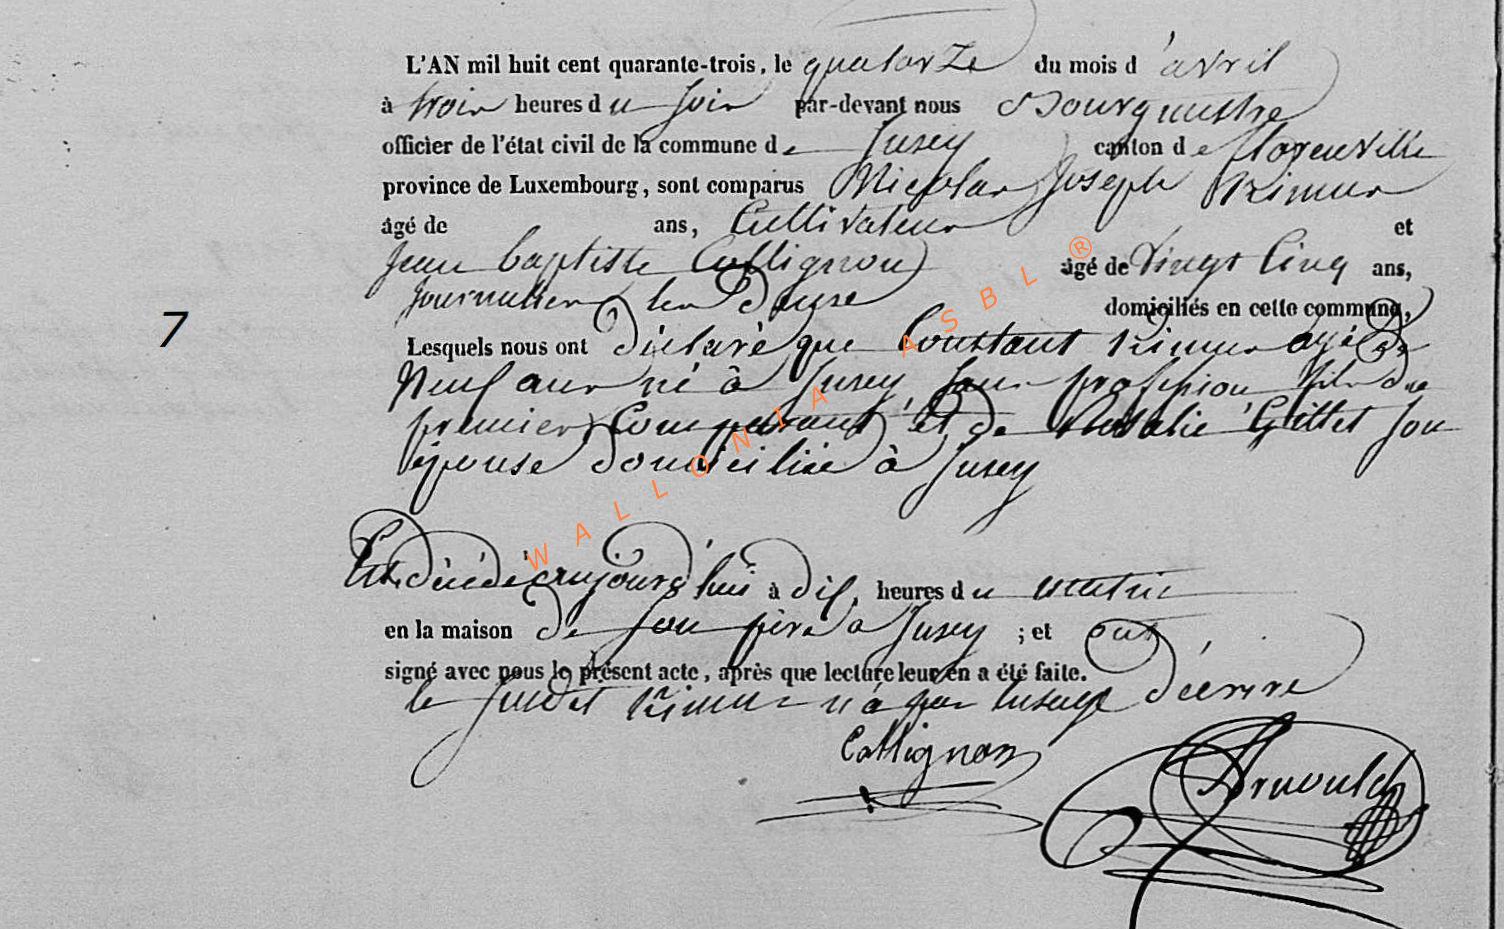 L'AN mil huit cent quarante-trois, le quatorze du mois d'avril
à trois heures du soir par-devant nous Bourgmestre
officier de l'état civil de la commune de Jusey canton de florenville
province de Luxembourg, sont comparus Nicolas Joseph
âgé de ans, Cultivateur et
Jean baptiste Collignon âgé de Vingt Cinq ans,
Journalier les Deux domiciliés en cette commune,
Lesquels nous ont déclaré que Constant agé de
Neuf ans né à Jusey sans profession fils du
premier Comparant et de Rosalie Gillet son
épouse domiciliée à Jusey
7
Est décédé aujourd'hui à dix heures du matin
en la maison de son père à Jusey ; et ont
signé avec nous le présent acte, après que lecture leur en a été faite.
le n'a pas lusage décrire
Collignon
Arnould
WALLONIA ASBL ®